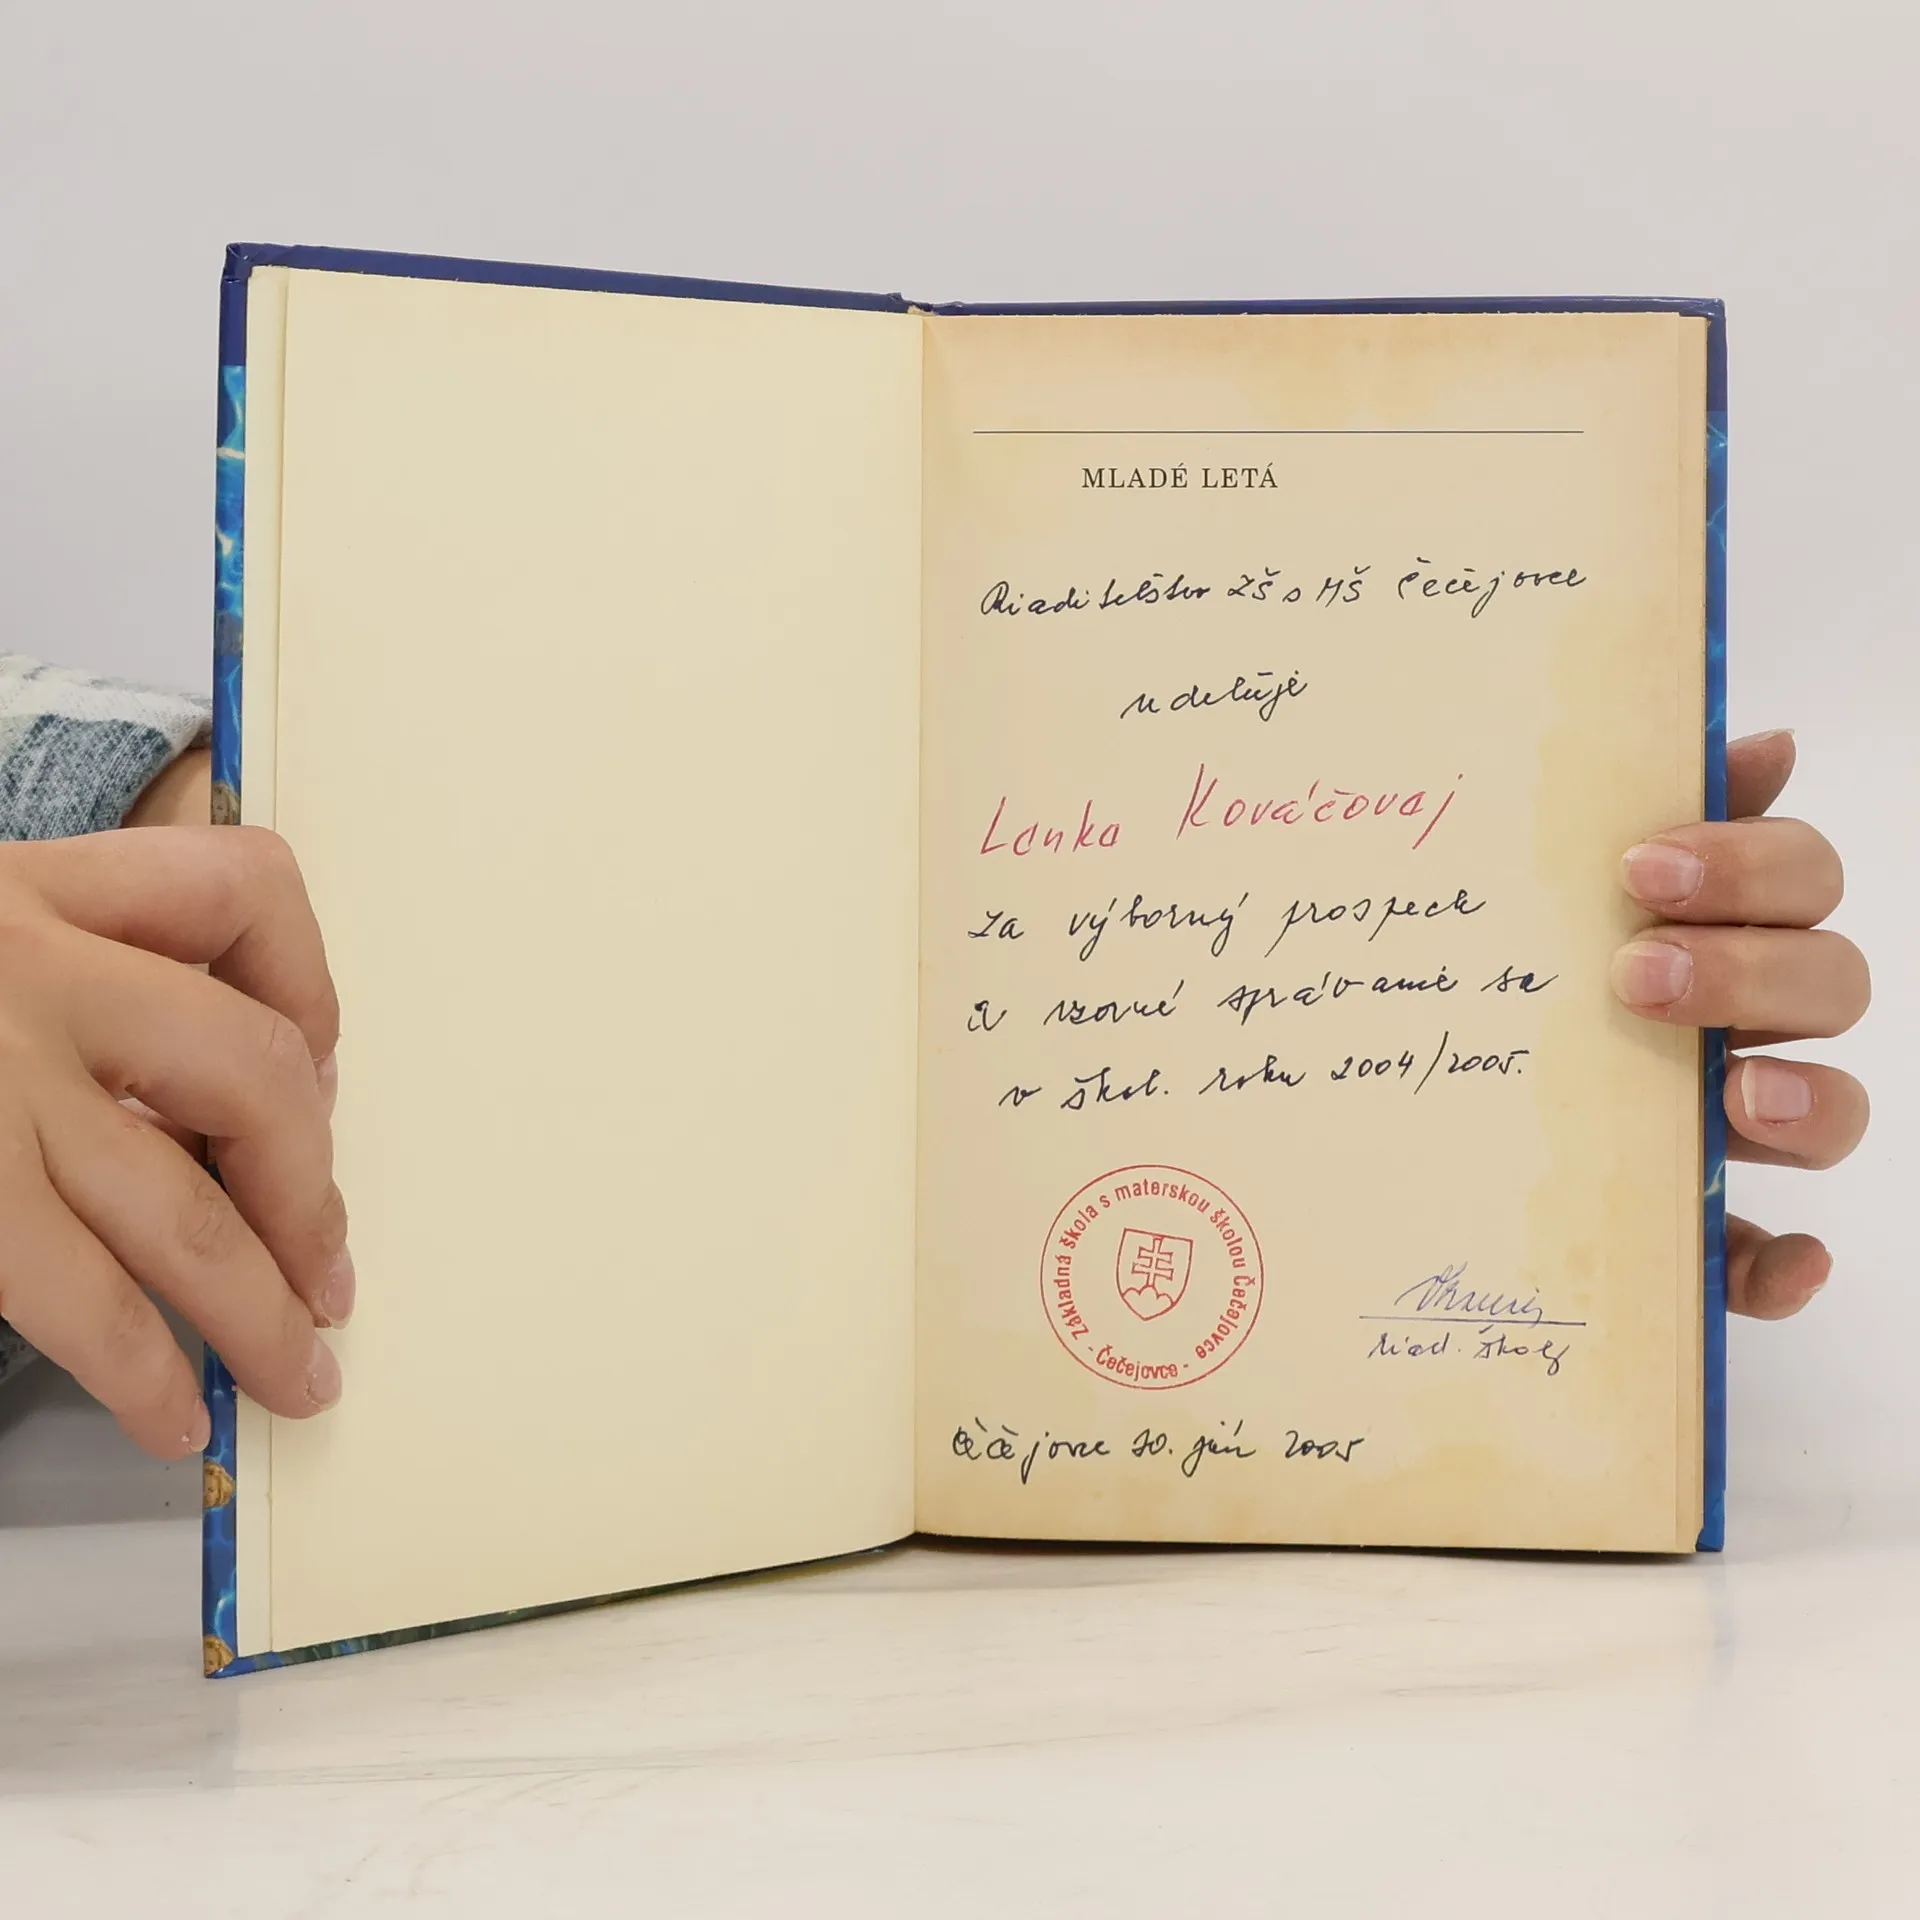 MLADÉ LETÁ
Riaditeľstvo ZŠ s MŠ Čečejovce
udeľuje
Lenka Kováčovaj
za výborný prospech
a vzorné správanie sa
v škol. roku 2004/2005.
Základná škola s materskou školou Čečejovce
- Čečejovce -
riad. školy
Čečejovce 30. jún 2005